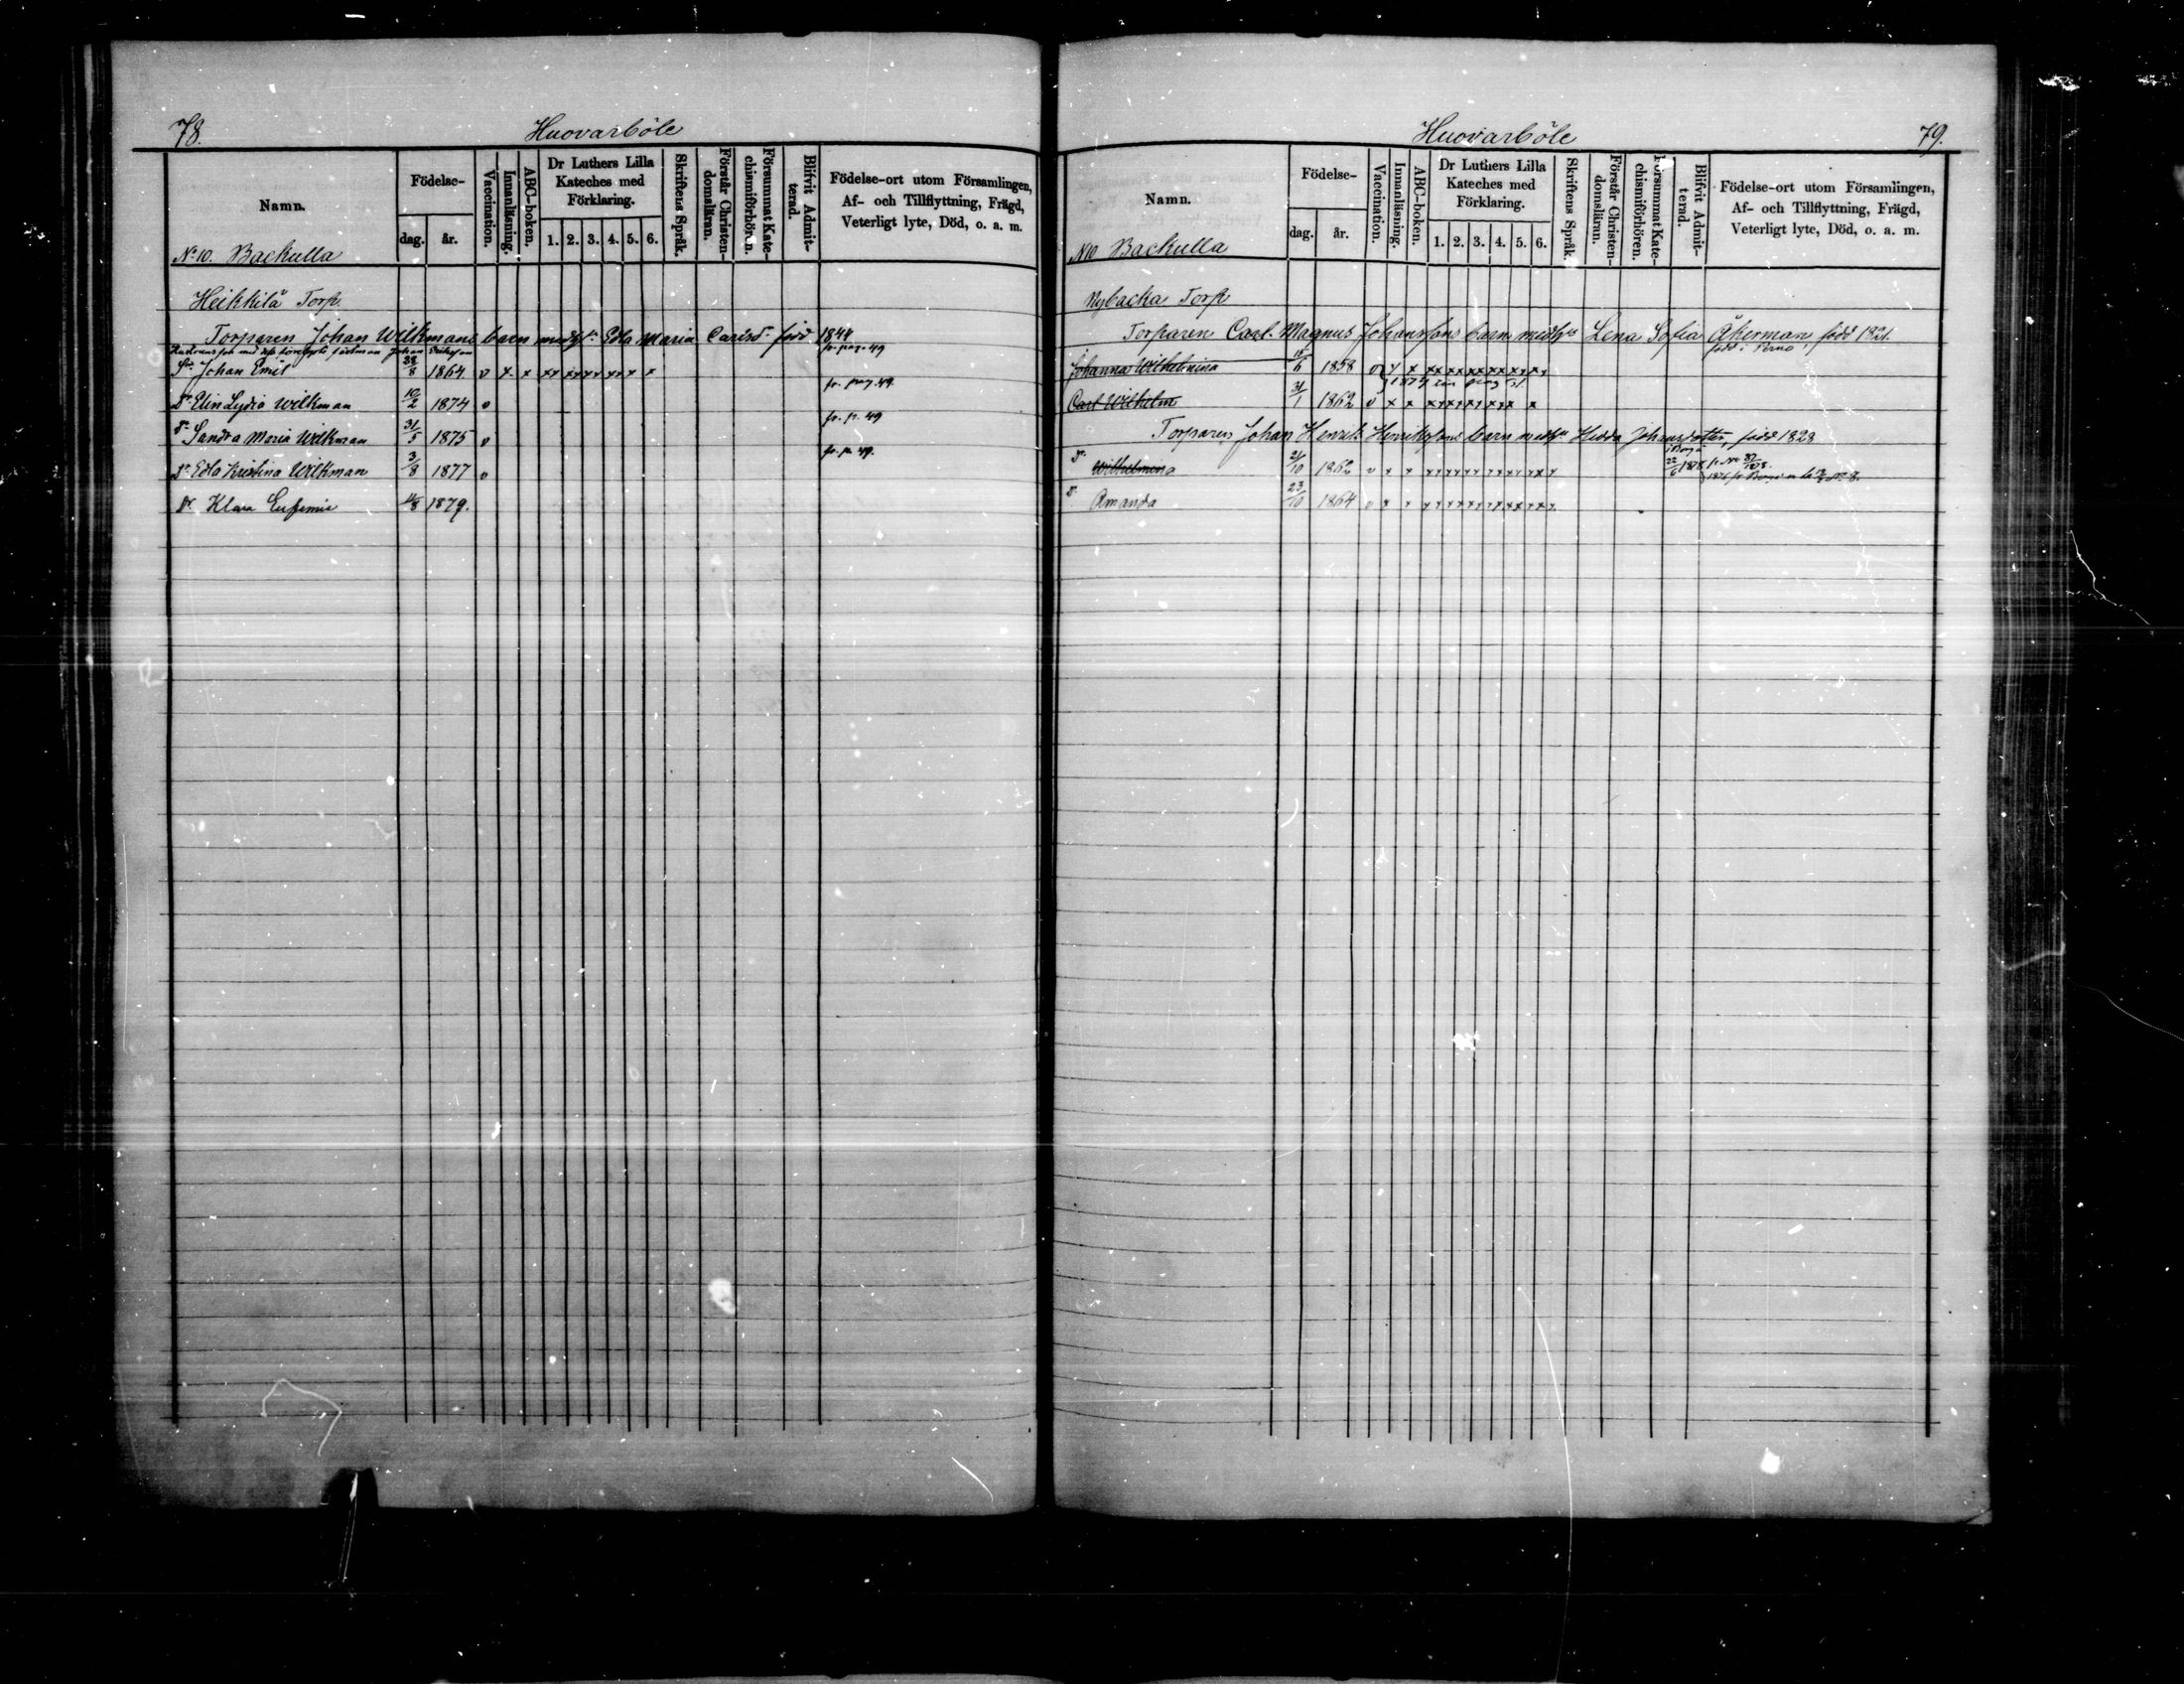 78.
Huovarböle
Namn.
Födelse-
dag.
år.
Vaccination.
Innanläsning.
ABC-boken.
Dr Luthers Lilla
Kateches med
Förklaring.
1. 2. 3. 4. 5. 6.
Skriftens Språk.
Förstår Christen-
domsläran.
Försummat Kate-
chismiförhören.
Blifvit Admit-
terad.
Födelse-ort utom Församlingen,
Af- och Tillflyttning, Frägd,
Veterligt lyte, Död, o. a. m.
No 10. Backulla
Heikkilä Torp.
Torparen Johan Wilkmans barn med Edla Maria född 1844
Johan
Johan Emil 28/8 1864 v x x xx xx xx xx xx x fr. pag. 49
Dr Elin Lydia Wilkman 10/2 1874 v fr. pag. 49.
dr Sandra Maria Wilkman 31/5 1875 v fr. p. 49
Dr Edla Kristina Wilkman 3/8 1877 v fr. p. 49.
Dr Klara Eufemia 1879.
Huovarböle
79.
Namn.
Födelse-
dag.
år.
Vaccination.
Innanläsning.
ABC-boken.
Dr Luthers Lilla
Kateches med
Förklaring.
1. 2. 3. 4. 5. 6.
Skriftens Språk.
Förstår Christen-
domsläran.
Försummat Kate-
chismiförhören.
Blifvit Admit-
terad.
Födelse-ort utom Församlingen,
Af- och Tillflyttning, Frägd,
Veterligt lyte, Död, o. a. m.
N10 Backulla
Nybacka Torp
Torparen Carl Magnus Johanssons barn med Lena Sofia Åkerman, född 1821.
född i Perno
Johanna Wilhelmina 1858 v x x xx xx xx xx xx xx
1874 pag
Carl Wilhelm 31/1 1862 v x x xx xx xx xx x
Torparen Johan Henrik Henrikssons barn med Hedda Johansdotter, född 1828
i Borgå
Dr Wilhelmina 21/10 1862 v x x xx xx xx xx xx xx 22/6 1878
1876 fr Borgå
d. Amanda 23/10 1864 v x x xx xx xx xx xx xx